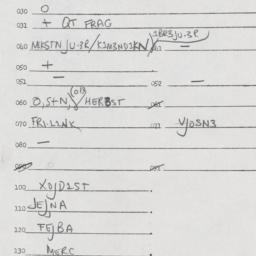 030 O
031 + QT FRAG
040 MKSTNJU-3R/K1M3ND1KN/1BR3JU-3R —
050 +
051 — 052 —
060 O,S+N,(OB)/HERBST
070 FRI-LINK 071 VJOSN3
080 —
100 XOJD1ST
110 JEJNA
120 FEJBA
130 MERC